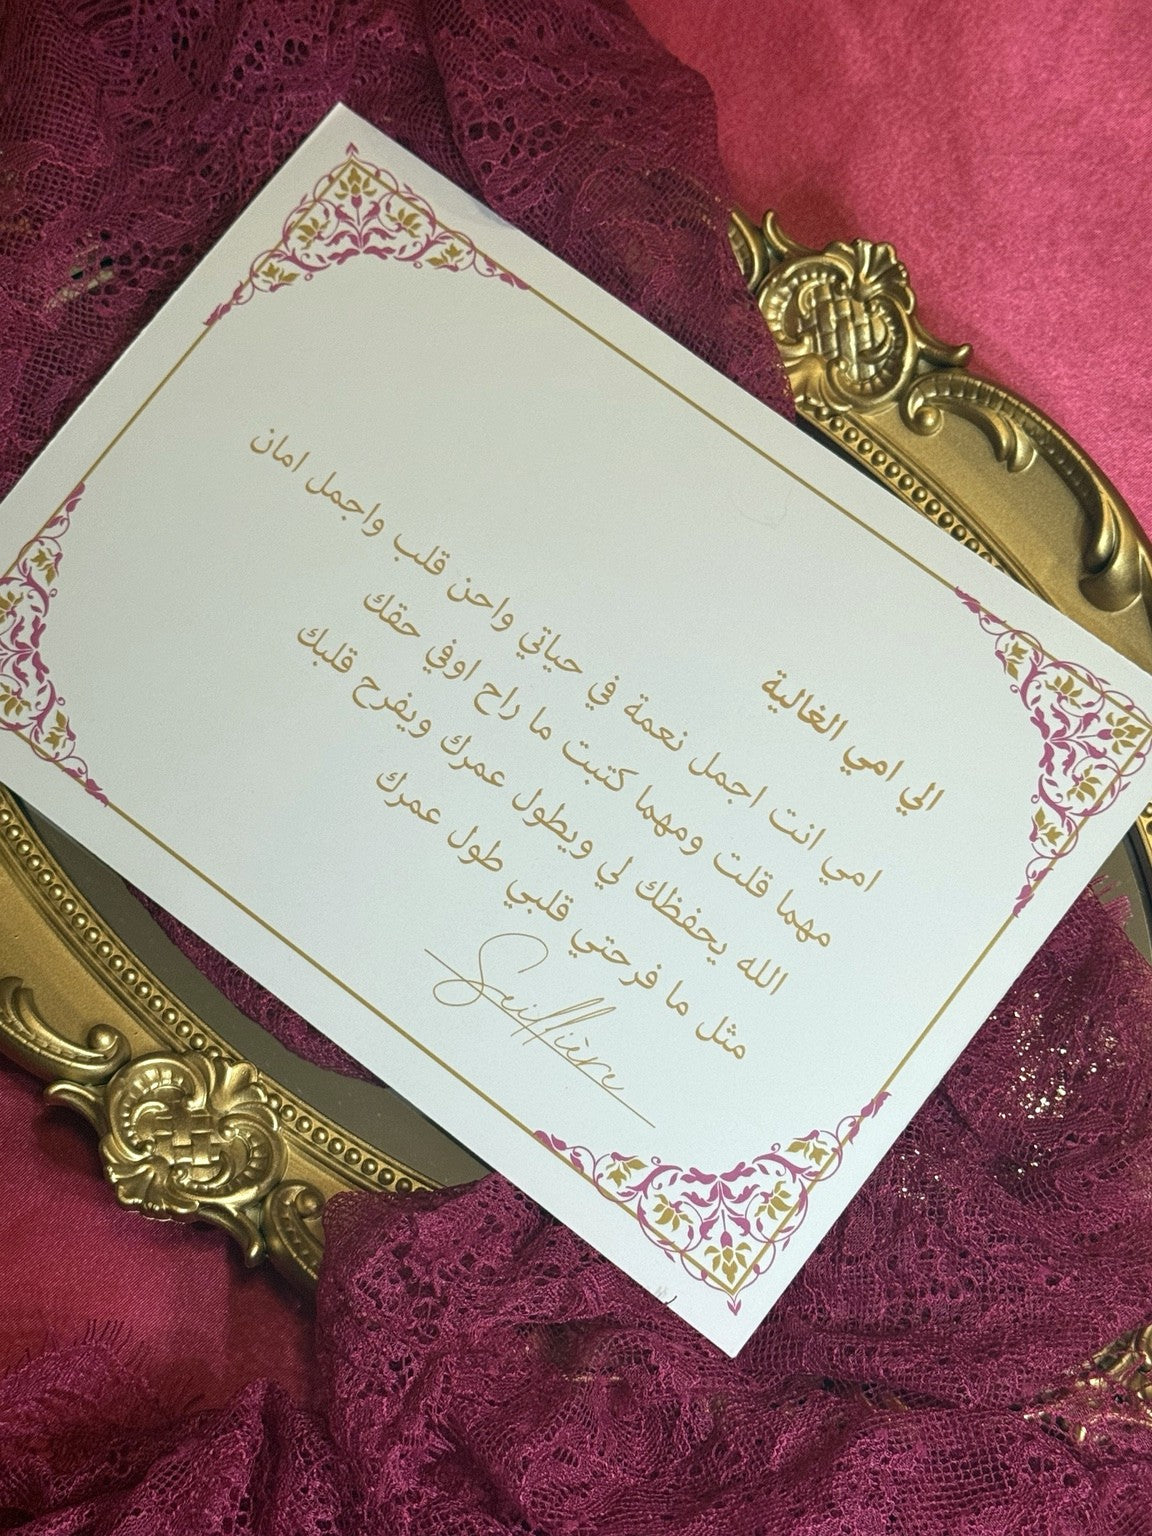 الي امي الغالية
امي انت اجمل نعمة في حياتي واحن قلب واجمل امان
مهما قلت ومهما كتبت ما راح اوفي حقك
الله يحفظك لي ويطول عمرك ويفرح قلبك
مثل ما فرحتي قلبي طول عمرك